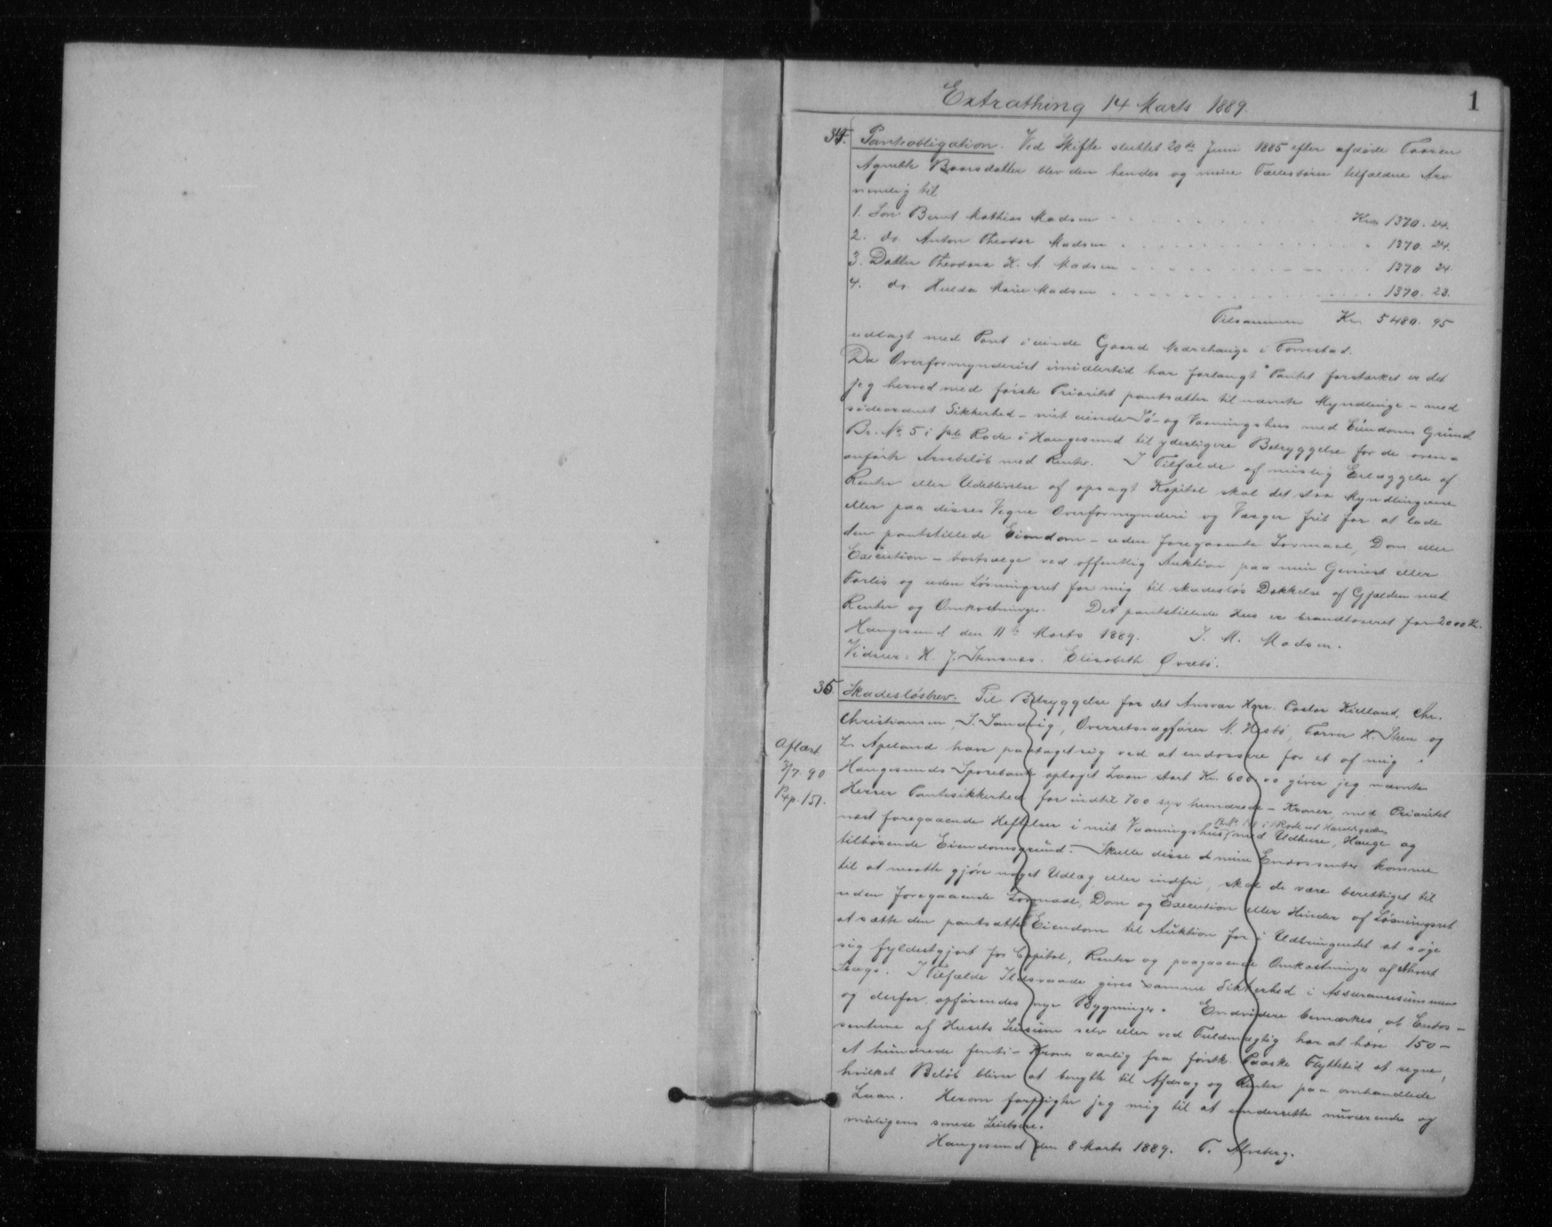 1
Extrathing 14 Marts 1889.
34. Pantobligation. Ved Skifte sluttet 20de Juni 1885 efter afdøde Kone
Agnethe Baarsdatter blev den hendes og mine Fællesbørn tilfaldne Arv
nemlig til
1. Søn Bernt Mathias Madsen Kr. 1370. 24.
2. do. Anton Theodor Madsen " 1370. 24.
3. Datter Theodora K. A. Madsen 1370 24.
4. do. Hulda Marie Madsen 1370. 23.
Tilsammen Kr. 5480. 95
udlagt med Pant i eiende Gaard i Torvestad.
Da Overformynderiet imidlertid har forlangt Pantet forstærket er det
jeg herved med første Prioritet pantsætter til nævnte Myndlinge – med
sideordnet Sikkerhed – mit eiende Sø- og Vaaningshus med Eiendoms Grund
Br. No. 5 i Rode i Haugesund til yderligere Betryggelse for de oven-
anførte Arvebeløb med Renter. I Tilfælde af mislig Erlæggelse af
Renter eller Udeblivelse af opsagt Kapital skal det staa Myndlingerne
eller paa disses Vegne Overformynderi og Værger frit for at lade
den pantstillede Eiendom – uden foregaaende Lovmaal, Dom eller
Execution – bortsælge ved offentlig Auktion paa min Gevinst eller
Forlis og uden Løsningsret for mig til skadesløs Dækkelse af Gjælden med
Renter og Omkostninger. Det pantstillede Hus er brandtaxeret for 2000 Kr.
Haugesund den 11te Marts 1889. I. M. Madsen.
Vidner: H. J. Elisabeth Øvrebø.
35 Skadesløsbrev. Til Betryggelse for det Ansvar Herr. Pastor Kielland, Chr.
Christiansen, S. Sandvig, Overretssagfører N. H. Steen og
L. Apeland have paataget sig ved at endossere for et af mig i
Haugesunds Sparebank optaget Laan stort Kr. 600 00 giver jeg nævnte
Herrer Pantesikkerhed for indtil 700 syv hundrede – Kroner, med Prioritet
næst foregaaende Heftelser i mit Vaaningshus, med Udhuse, Hauge og
tilhørende Eiendomsgrund. – Skulle disse mine Endossenter komme
til at maatte gjøre noget Udlæg eller indfri, skal de være berettiget til
uden foregaaende Lovmaal, Dom og Execution eller Hinder af Løsningsret
at sætte den pantsatte Eiendom til Auktion for i Udbringendet at søge
sig fyldestgjort for Capital, Renter og paagaaende Omkostninger af
Slags. I Tilfælde Ildsvaade gives samme Sikkerhed i Assurancesummen
og derfor opførendes nye Bygninger. Endvidere bemærkes, at Endos-
senterne af Husets Leiesum selv eller ved Fuldmægtig har at hæve 150 –
et hundrede femti – Kroner aarlig fra første Paaske Flyttetid at regne,
hvilket Beløb bliver at benytte til Afdrag og Renter paa omhandlede
Laan. Herom forpligter jeg mig til at underrette nuværende og
muligens senere Leiebere.
Haugesund den 8 Marts 1889. T.
Aflæst
3/7 90
P4p. 151.